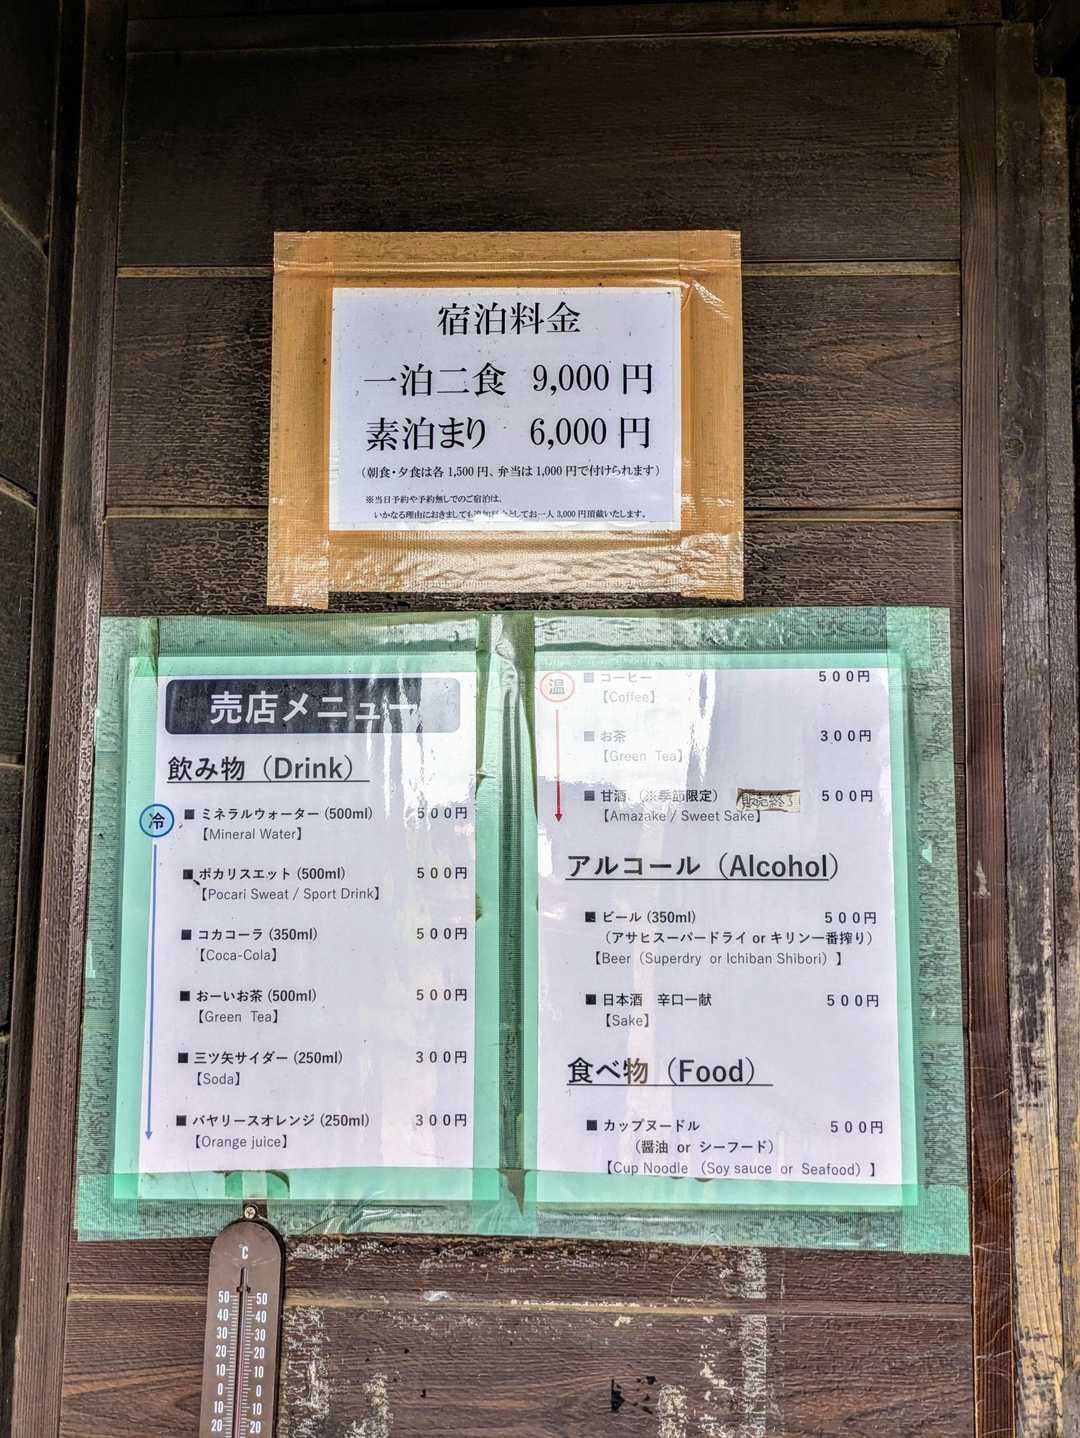 宿泊料金
一泊二食 9,000 円
素泊まり 6,000 円
（朝食・夕食は各 1,500 円、弁当は 1,000 円で付けられます）
※当日予約や予約無しでのご宿泊は、
いかなる理由におきましても追加料金としてお一人 3,000 円頂戴いたします。
売店メニュー
飲み物（Drink）
冷
■ ミネラルウォーター (500ml) 500円
【Mineral Water】
■ ポカリスエット (500ml) 500円
【Pocari Sweat / Sport Drink】
■ コカコーラ (350ml) 500円
【Coca-Cola】
■ おーいお茶 (500ml) 500円
【Green Tea】
■ 三ツ矢サイダー (250ml) 300円
【Soda】
■ バヤリースオレンジ (250ml) 300円
【Orange juice】
温
■ コーヒー 500円
【Coffee】
■ お茶 300円
【Green Tea】
■ 甘酒（※季節限定） 販売終了 500円
【Amazake / Sweet Sake】
アルコール（Alcohol）
■ ビール (350ml) 500円
（アサヒスーパードライ or キリン一番搾り）
【Beer（Superdry or Ichiban Shibori）】
■ 日本酒 辛口一献 500円
【Sake】
食べ物（Food）
■ カップヌードル 500円
（醤油 or シーフード）
【Cup Noodle （Soy sauce or Seafood）】
℃
50 50
40 40
30 30
20 20
10 10
0 0
10 10
20 20